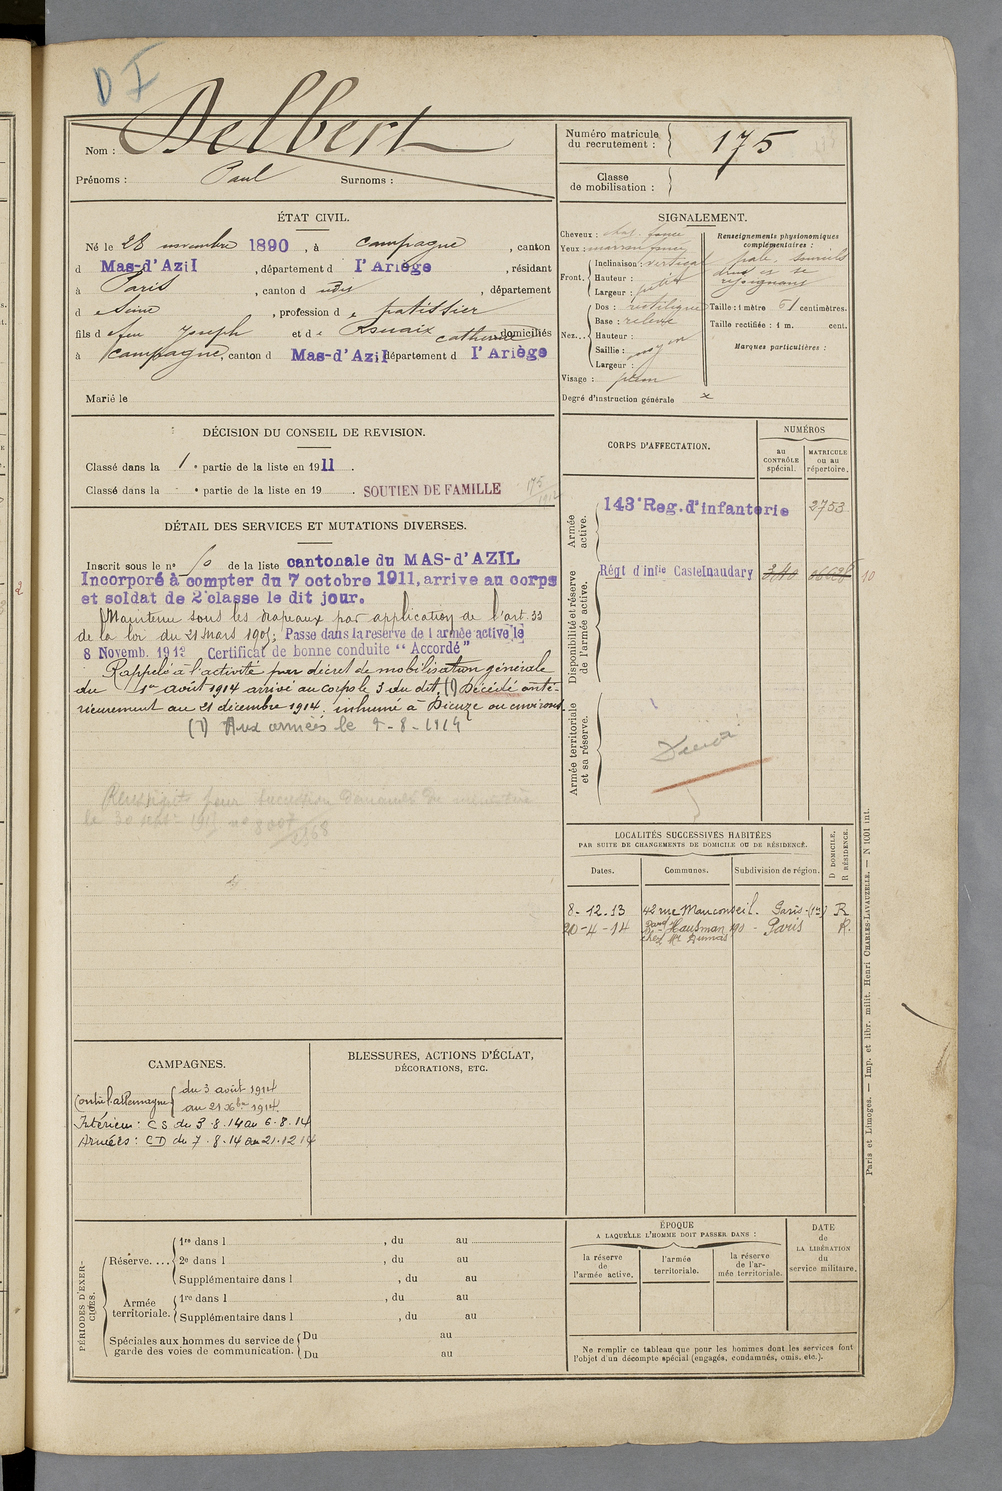 D I
Nom : Delbert
Prénoms : Paul Surnoms :
Numéro matricule du recrutement : 175
Classe de mobilisation :
ÉTAT CIVIL.
Né le 28 novembre 1890, à Campagne, canton
d Mas-d'Azil, département d l'Ariège, résidant
à Paris, canton d udis, département
d e Seine, profession d e patissier
fils d e feu Joseph et d e Rouaix Catherine domiciliés
à Campagne, canton d Mas-d'Azil département d l'Ariège
Marié le
SIGNALEMENT.
Cheveux : chat. foncé
Yeux : marron foncé
Front. Inclinaison : vertical
Hauteur : petite
Largeur : petite
Nez... Dos : rectiligne
Base : relevé
Hauteur :
Saillie : moyen
Largeur :
Visage : plein
Degré d'instruction générale x
Renseignements physionomiques complémentaires :
pâle. sourcils
drus et se
rejoignant
Taille : 1 mètre 61 centimètres.
Taille rectifiée : 1 m. cent.
Marques particulières :
DÉCISION DU CONSEIL DE REVISION.
Classé dans la 1e partie de la liste en 1911.
Classé dans la e partie de la liste en 19 . SOUTIEN DE FAMILLE 175/1912
DÉTAIL DES SERVICES ET MUTATIONS DIVERSES.
Inscrit sous le n° 6 de la liste cantonale du MAS-d'AZIL
Incorporé à compter du 7 octobre 1911, arrive au corps
et soldat de 2e classe le dit jour.
Maintenu sous les drapeaux par application de l'art. 33
de la loi du 21 mars 1905; Passe dans la reserve de l'armée active le
8 Novemb. 1913 Certificat de bonne conduite "Accordé"
Rappelé à l'activité par décret de mobilisation générale
du 1er août 1914 arrivé au corps le 3 du dit, (1) Décédé anté-
rieurement au 21 décembre 1914. inhumé à Dieuze ou environs.
(1) Aux armées le 7-8-1914
pour succession demandés
le 30 sept. n° 8007
CORPS D'AFFECTATION.
NUMÉROS
au CONTRÔLE spécial.
MATRICULE ou au répertoire.
Armée active.
143e Reg. d'infanterie 2753
Disponibilité et réserve de l'armée active.
Régt d'infie Castelnaudary 10
Armée territoriale et sa réserve.
LOCALITÉS SUCCESSIVES HABITÉES
PAR SUITE DE CHANGEMENTS DE DOMICILE OU DE RÉSIDENCE.
D DOMICILE, R RÉSIDENCE.
Dates. Communes. Subdivision de région.
8-12.13 42 rue Mauconseil. Paris (1er) R
20-4-14 Bard Hausman 190 - Paris R.
chez Mr Dumas
CAMPAGNES.
Contre l'allemagne du 3 août 1914
au 21 Xbre 1914.
Intérieur : CS du 3.8.14 au 6.8.14
Armées : CD du 7.8.14 au 21.12.14
BLESSURES, ACTIONS D'ÉCLAT, DÉCORATIONS, ETC.
PÉRIODES D'EXERCICES.
Réserve.... 1re dans l , du au
2e dans l , du au
Supplémentaire dans l , du au
Armée territoriale. 1re dans l , du au
Supplémentaire dans l , du au
Spéciales aux hommes du service de garde des voies de communication. Du au
Du au
ÉPOQUE
A LAQUELLE L'HOMME DOIT PASSER DANS :
la réserve de l'armée active.
l'armée territoriale.
la réserve de l'armée territoriale.
DATE de LA LIBÉRATION du service militaire.
Ne remplir ce tableau que pour les hommes dont les services font
l'objet d'un décompte spécial (engagés, condamnés, omis, etc.).
Paris et Limoges. — Imp. et libr. milit. Henri CHARLES-LAVAUZELLE. — N 1001 int.